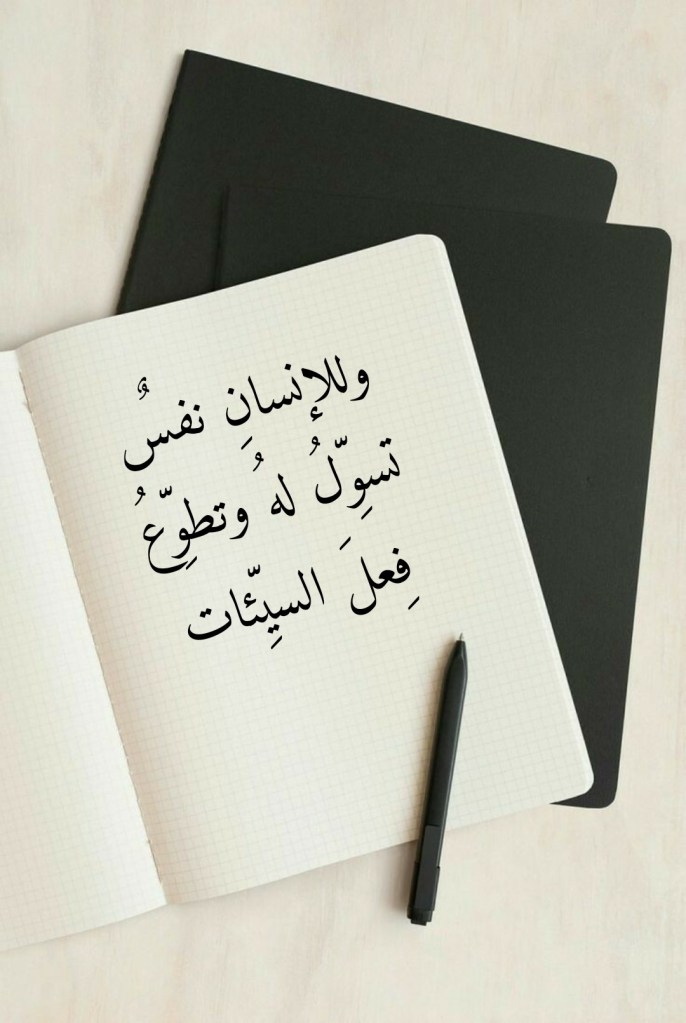 وللإنسانِ نفسٌ
تسوِّلُ لهُ وتطوِّعُ
فِعلَ السيِّئات